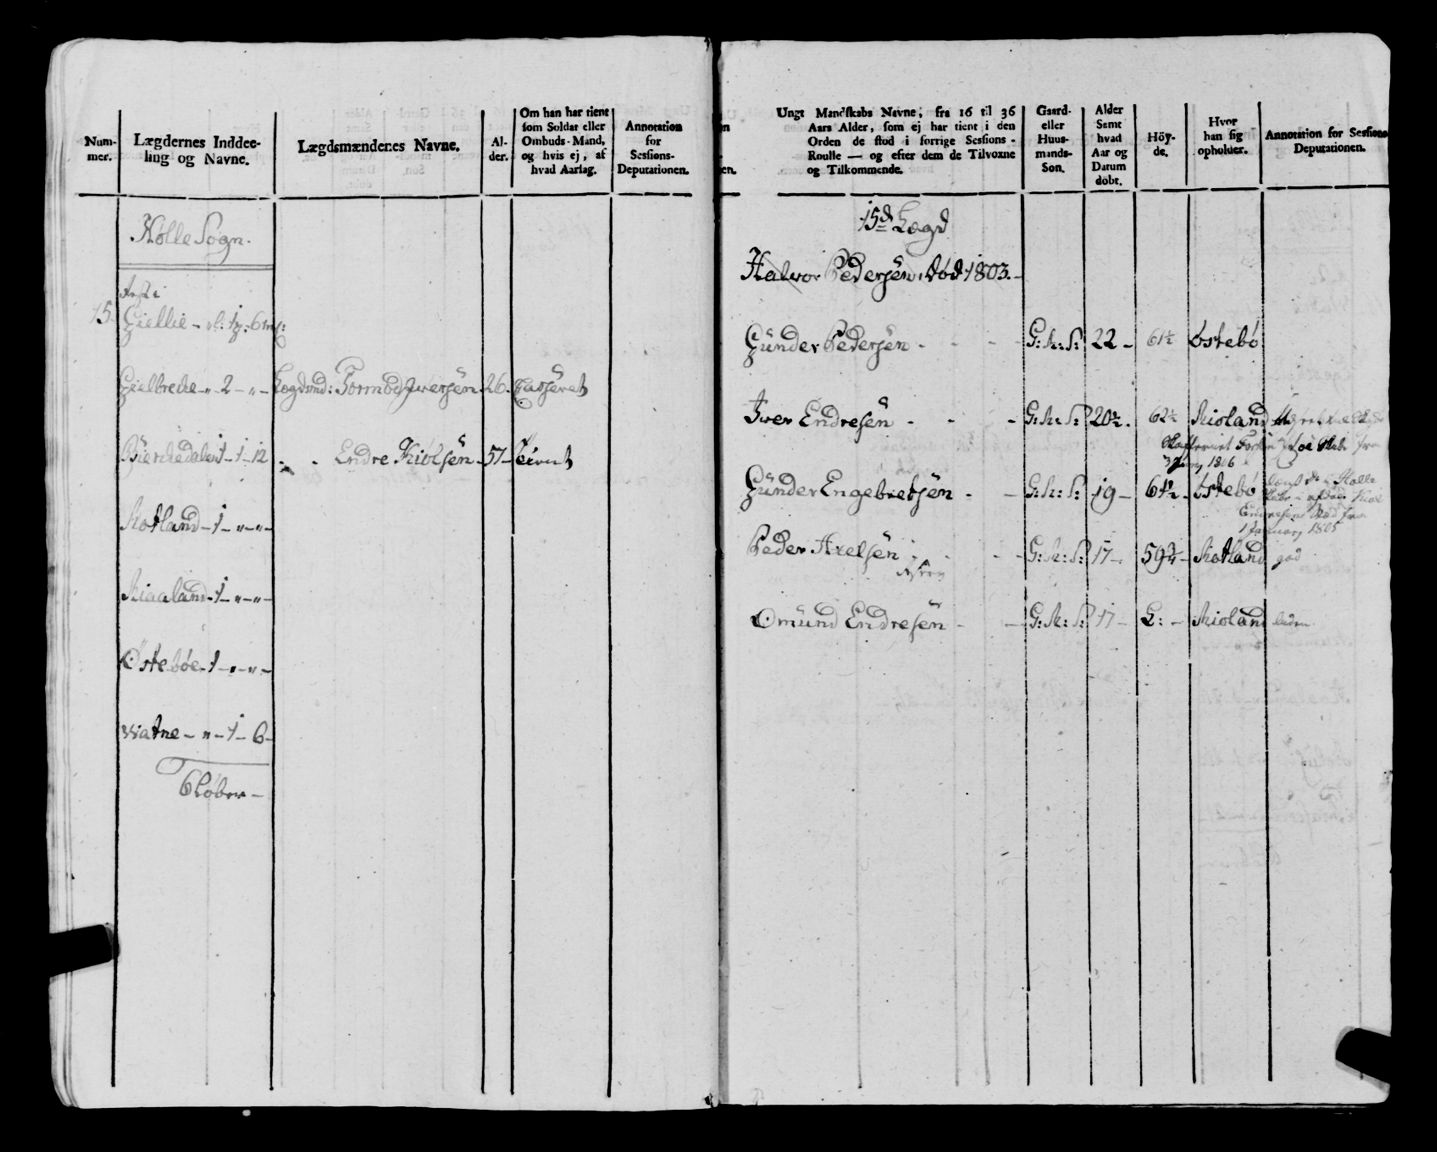 Num-
mer.
Lægdernes Inddee-
ling og Navne.
Lægdsmændenes Navne.
Al-
der.
Om han har tient
som Soldat eller
Ombuds-Mand,
og hvis ej, af
hvad Aarsag.
Annotation
for
Sessions-
Deputationen.
Holle Sogn.
15.
Giellie
Gielbrede - " 2 - " -
Lægdsmd: Tormod Iversen - 26. Casseret
Bierchedalen 1 - 1 - 12
Endre Kiølsen - 57 - tient
Motland - 1 - " - " -
Miaaland - 1 - " - " -
Østebøe - 1 - " - " -
Watne - " - 1 - 6 -
6 Løber -
Ungt Mandskabs Navne, fra 16 til 36
Aars Alder, som ej har tient i den
Orden de stod i forrige Sessions-
Roulle — og efter dem de Tilvoxne
og Tilkommende.
Gaard-
eller
Huus-
mands-
Son.
Alder
Samt
hvad
Aar og
Datum
döbt.
Höy-
de.
Hvor
han sig
opholder.
Annotation for Sessions
Deputationen.
15de Lægd
Halvor Pedersen, död 1803. -
Günder Pedersen - - - G: M: S: 22 - 61½ Østebö
Iver Endresen - - - G: M: S: 20½ - 62½ Mioland
Günder Engebretsen - - G: M: S: 19 - 61½ - Østebö
1 Januarj 1805
Peder Axelsen - - - G: M: S: 17 - 59¾ - Motland god
Omünd Endresen - - G: M: S: 17 - L: - Mioland liden